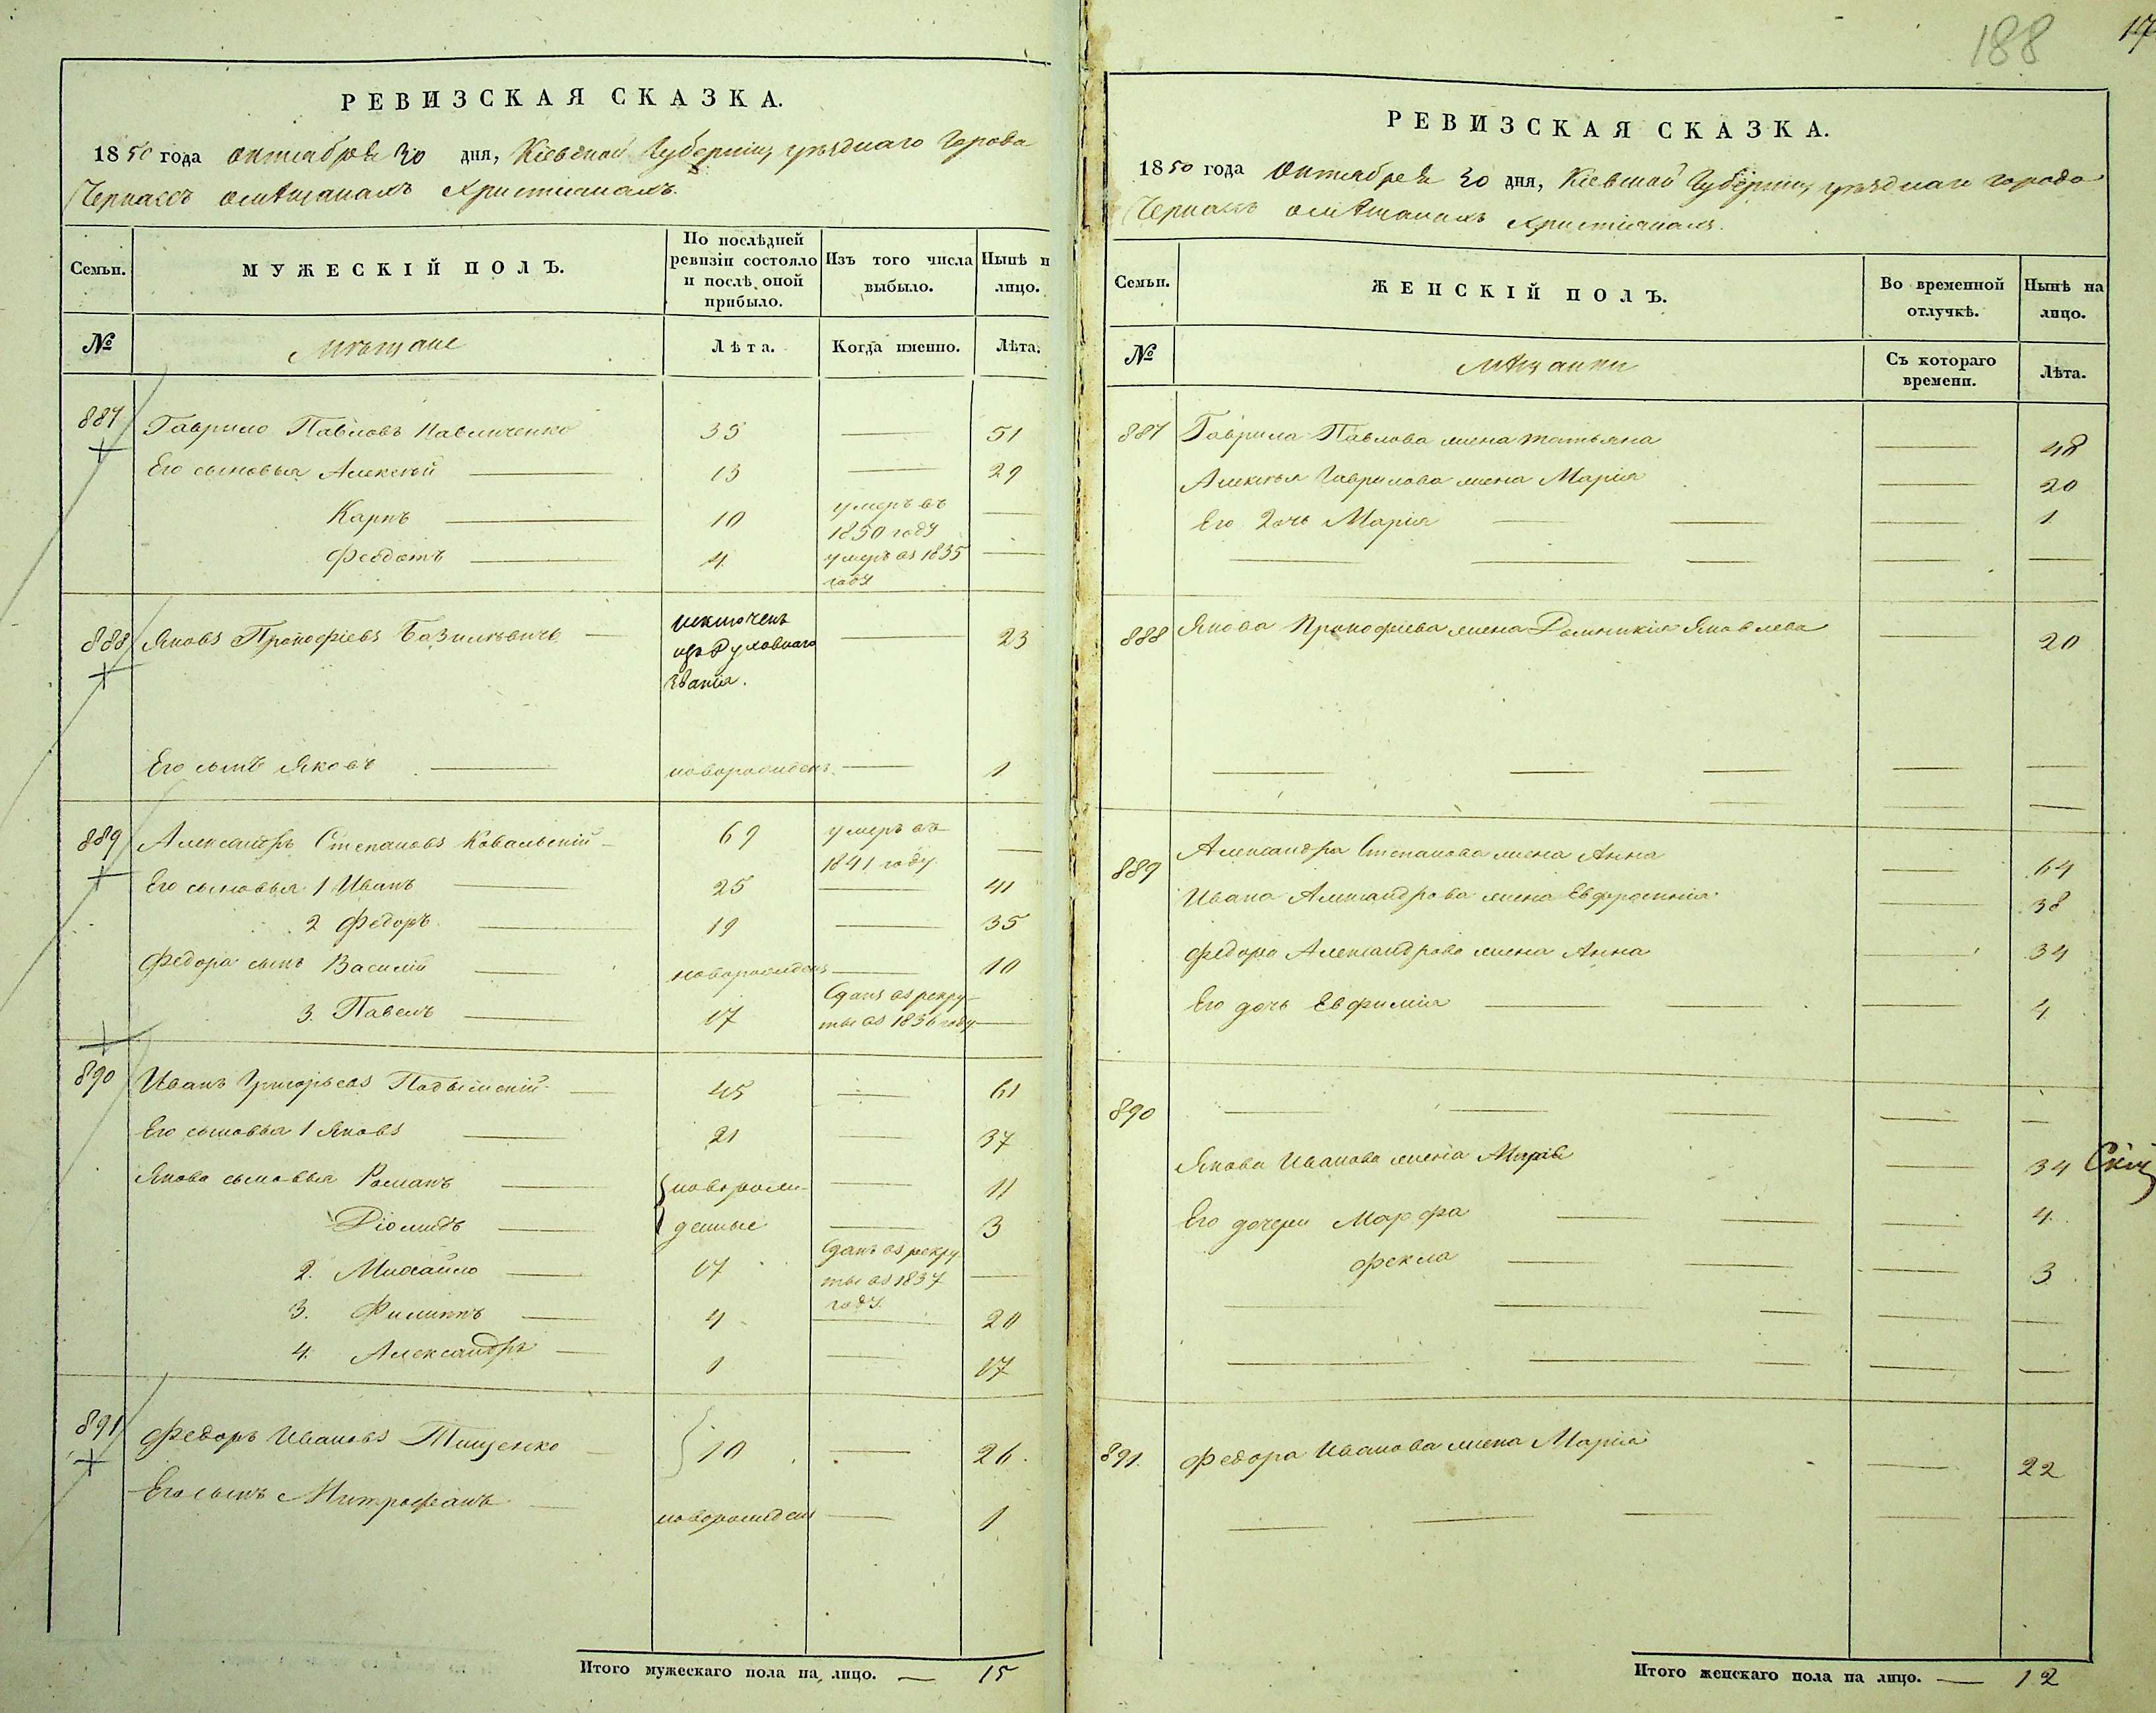 188
17
РЕВИЗСКАЯ СКАЗКА.
1850 года Октября 30 дня, Кіевской Губерніи, уѣзднаго Города
Черкассъ о мѣщанахъ Христіанахъ.
Семьи.
МУЖЕСКІЙ ПОЛЪ.
По послѣдней ревизіи состояло и послѣ оной прибыло.
Изъ того числа выбыло.
Нынѣ н лицо.
№
Мѣщане
Лѣта.
Когда именно.
Лѣта.
887 Гаврило Павловъ Павличенко 35 — 51
Его сыновья Алексѣй — 13 — 29
Карпъ — 10 умеръ въ 1850 году —
Феодотъ — 4 умеръ въ 1835 году —
888 Яковъ Прокофіевъ Базилевичъ — исключенъ изъ Духовнаго Званія. — 23
Его сынъ Яковъ — новорожденъ — 1
889 Александръ Степановъ Ковальскій — 69 умеръ въ 1841 году —
Его сыновья 1 Иванъ — 25 — 41
2 Федоръ — 19 — 35
Федора сынъ Василій — новорожденъ — 10
3. Павелъ — 17 Сданъ въ рекруты въ 1836 году —
890 Иванъ Григорьевъ — 45 — 61
Его сыновья 1 Яковъ — 21 — 37
Якова сыновья Романъ — новорож- — 11
Діомидъ — денные — 3
2. Михайло — 17 Сданъ въ рекруты въ 1837 году. —
3. Филиппъ — 4 — 20
4. Александръ — 1 — 17
891 Федоръ Ивановъ Тищенко — 10 — 26.
Его сынъ Митрофанъ — новорожденъ — 1
Итого мужескаго пола на лицо. — 15
РЕВИЗСКАЯ СКАЗКА.
1850 года Октября 30 дня, Кіевской Губерніи, уѣзднаго города
Черкассъ о мѣщанахъ Христіанахъ.
Семьи.
ЖЕНСКІЙ ПОЛЪ.
Во временной отлучкѣ.
Нынѣ на лицо.
№
Мѣщанки
Съ котораго времени.
Лѣта.
887 Гаврила Павлова жена Татьяна — 48
Алексѣя Гаврилова жена Марія — 20
Его дочь Марія — — — 1
888 Якова Прокофіева жена Домникія Яковлева — 20
889 Александра Степанова жена Анна — 64
Ивана Александрова жена Евфросинія — 38
Федора Александрова жена Анна — 34
Его дочь Евфимія — — — 4
890 — — — — —
Якова Иванова жена Марія — 34
Его дочери Марфа — — — 4
Фекла — — — 3
891. Федора Иванова жена Марія — 22
Итого женскаго пола на лицо. — 12